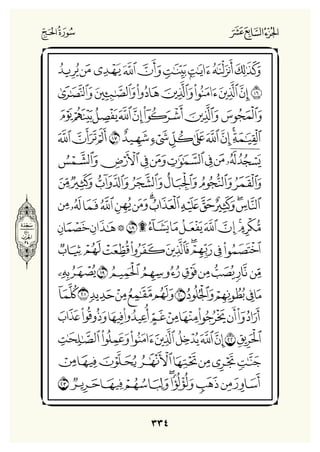 الجزء السابع عشر سورة الحج
وَكَذَٰلِكَ أَنزَلْنَٰهُ ءَايَٰتٍۭ بَيِّنَٰتٍ وَأَنَّ ٱللَّهَ يَهْدِى مَن يُرِيدُ
١٦ إِنَّ ٱلَّذِينَ ءَامَنُوا۟ وَٱلَّذِينَ هَادُوا۟ وَٱلصَّٰبِـِٔينَ وَٱلنَّصَٰرَىٰ
وَٱلْمَجُوسَ وَٱلَّذِينَ أَشْرَكُوٓا۟ إِنَّ ٱللَّهَ يَفْصِلُ بَيْنَهُمْ يَوْمَ
ٱلْقِيَٰمَةِ ۚ إِنَّ ٱللَّهَ عَلَىٰ كُلِّ شَىْءٍ شَهِيدٌ ١٧ أَلَمْ تَرَ أَنَّ ٱللَّهَ
يَسْجُدُ لَهُۥ مَن فِى ٱلسَّمَٰوَٰتِ وَمَن فِى ٱلْأَرْضِ وَٱلشَّمْسُ
وَٱلْقَمَرُ وَٱلنُّجُومُ وَٱلْجِبَالُ وَٱلشَّجَرُ وَٱلدَّوَآبُّ وَكَثِيرٌ مِّنَ
ٱلنَّاسِ ۖ وَكَثِيرٌ حَقَّ عَلَيْهِ ٱلْعَذَابُ ۗ وَمَن يُهِنِ ٱللَّهُ فَمَا لَهُۥ مِن
مُّكْرِمٍ ۚ إِنَّ ٱللَّهَ يَفْعَلُ مَا يَشَآءُ ۩ ١٨ ۞ هَٰذَانِ خَصْمَانِ
ٱخْتَصَمُوا۟ فِى رَبِّهِمْ ۖ فَٱلَّذِينَ كَفَرُوا۟ قُطِّعَتْ لَهُمْ ثِيَابٌ
مِّن نَّارٍ يُصَبُّ مِن فَوْقِ رُءُوسِهِمُ ٱلْحَمِيمُ ١٩ يُصْهَرُ بِهِۦ
مَا فِى بُطُونِهِمْ وَٱلْجُلُودُ ٢٠ وَلَهُم مَّقَٰمِعُ مِنْ حَدِيدٍ ٢١ كُلَّمَآ
أَرَادُوٓا۟ أَن يَخْرُجُوا۟ مِنْهَا مِنْ غَمٍّ أُعِيدُوا۟ فِيهَا وَذُوقُوا۟ عَذَابَ
ٱلْحَرِيقِ ٢٢ إِنَّ ٱللَّهَ يُدْخِلُ ٱلَّذِينَ ءَامَنُوا۟ وَعَمِلُوا۟ ٱلصَّٰلِحَٰتِ
جَنَّٰتٍ تَجْرِى مِن تَحْتِهَا ٱلْأَنْهَٰرُ يُحَلَّوْنَ فِيهَا مِنْ
أَسَاوِرَ مِن ذَهَبٍ وَلُؤْلُؤًا ۖ وَلِبَاسُهُمْ فِيهَا حَرِيرٌ ٢٣
٣٣٤